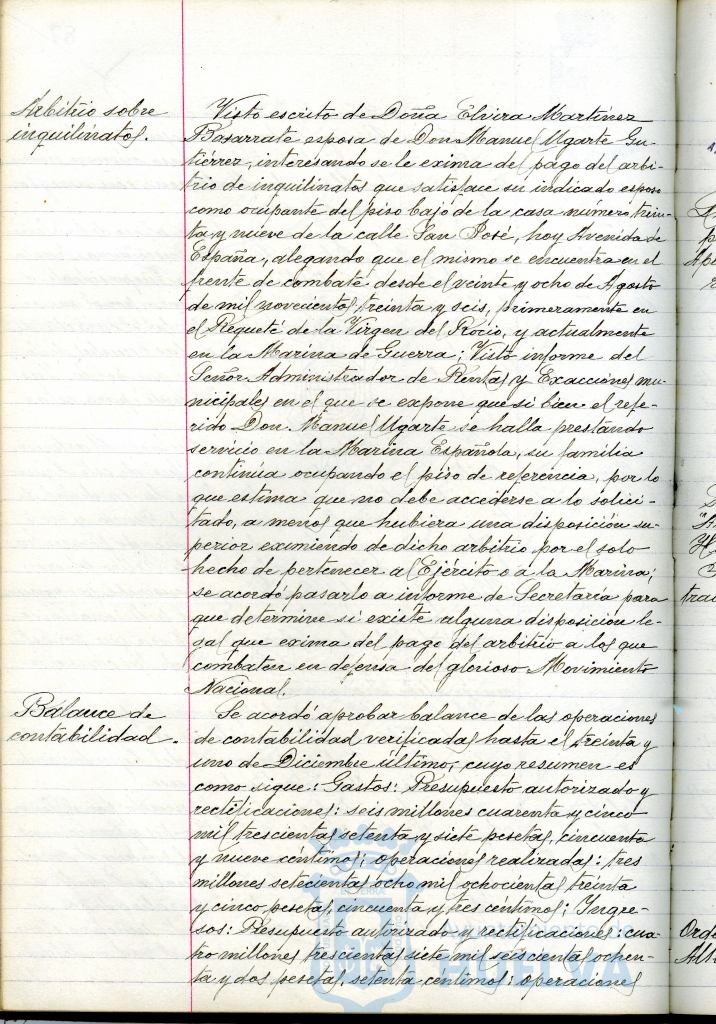 Arbitrio sobre
inquilinatos.
Visto escrito de Doña Elvira Martínez
Basarrate esposa de Don Manuel Ugarte Gu-
tiérrez, interesando se le exima del pago del arbi-
trio de inquilinatos que satisface su indicado esposo
como ocupante del piso bajo de la casa número trein-
ta y nueve de la calle San José, hoy Avenida de
España, alegando que el mismo se encuentra en el
frente de combate desde el veinte y ocho de Agosto
de mil novecientos treinta y seis, primeramente en
el Requeté de la Virgen del Rocío, y actualmente
en la Marina de Guerra; Visto informe del
Señor Administrador de Rentas y Exacciones mu-
nicipales en el que se expone que si bien el refe-
rido Don Manuel Ugarte se halla prestando
servicio en la Marina Española, su familia
continúa ocupando el piso de referencia, por lo
que estima que no debe accederse a lo solici-
tado, a menos que hubiera una disposición su-
perior eximiendo de dicho arbitrio por el solo
hecho de pertenecer al Ejército o a la Marina;
se acordó pasarlo a informe de Secretaría para
que determine si existe alguna disposición le-
gal que exima del pago del arbitrio a los que
combaten en defensa del glorioso Movimiento
Nacional.
Balance de
contabilidad.
Se acordó aprobar balance de las operaciones
de contabilidad verificadas hasta el treinta y
uno de Diciembre último, cuyo resumen es
como sigue: Gastos: Presupuesto autorizado y
rectificaciones: seis millones cuarenta y cinco
mil trescientas setenta y siete pesetas, cincuenta
y nueve céntimos; operaciones realizadas: tres
millones setecientas ocho mil ochocientas treinta
y cinco pesetas, cincuenta y tres céntimos; Ingre-
sos: Presupuesto autorizado y rectificaciones: cua-
tro millones trescientas siete mil seiscientas ochen-
ta y dos pesetas, setenta céntimos: operaciones
HUELVA